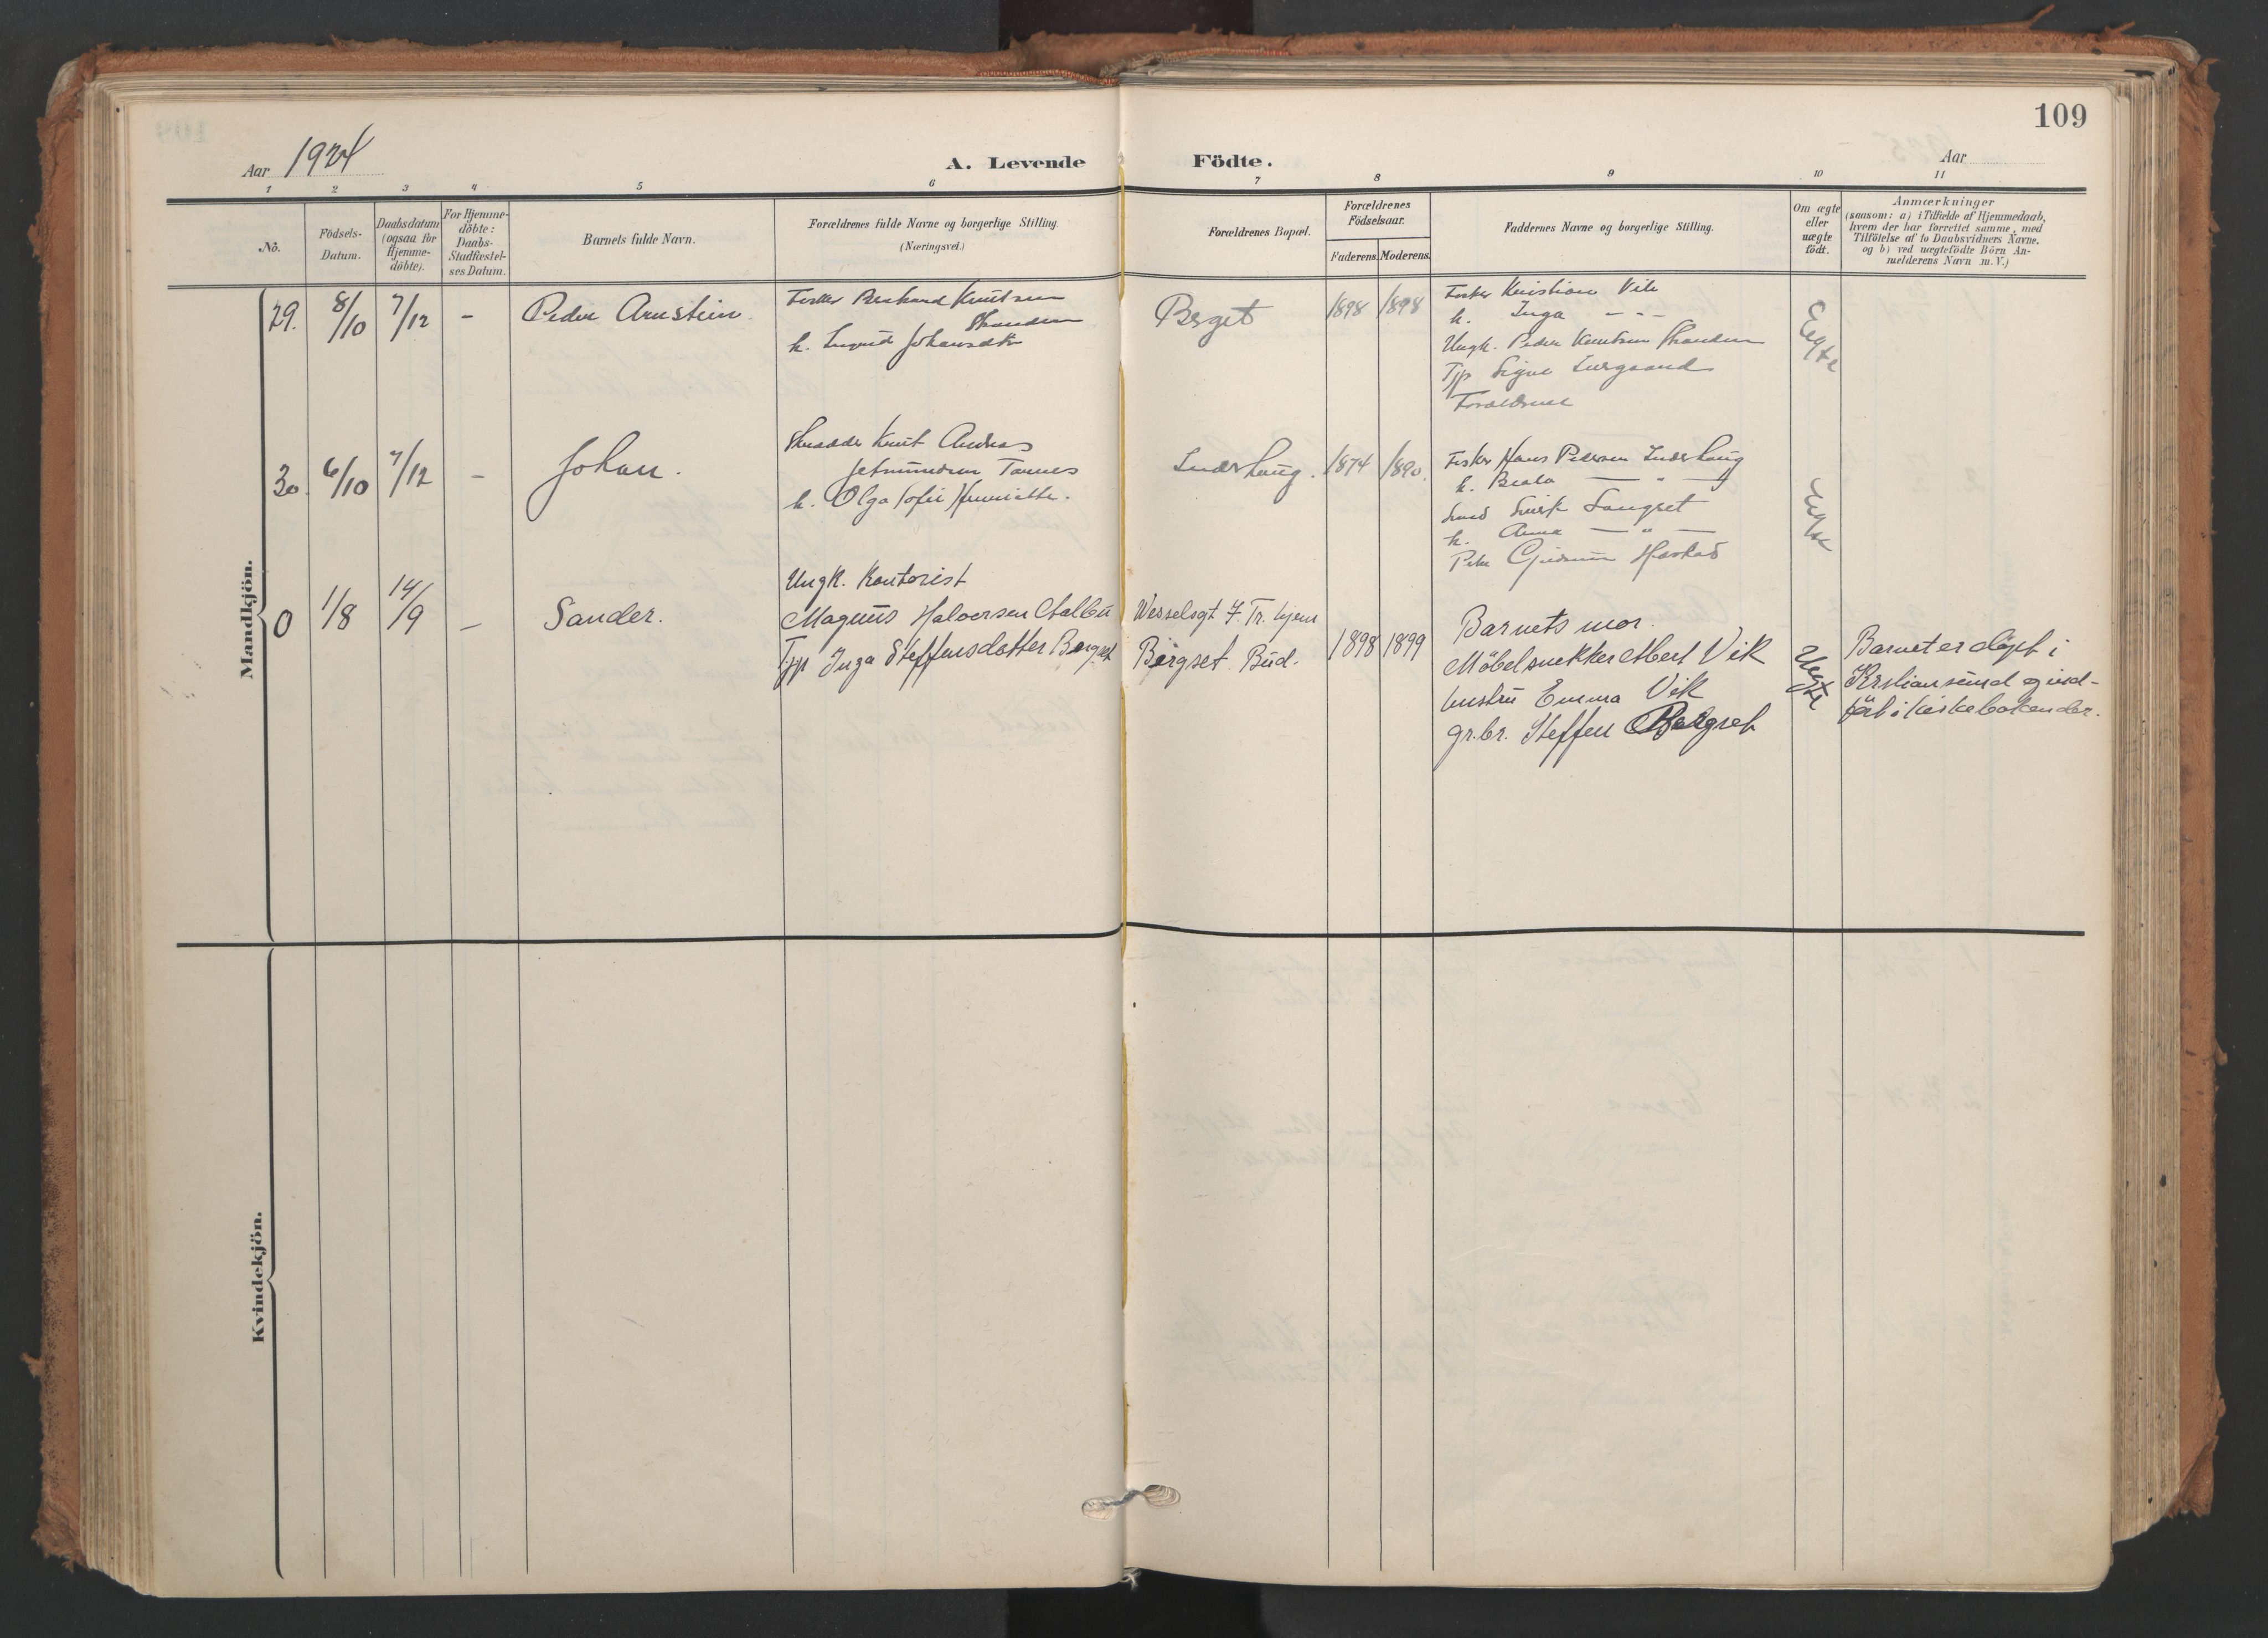 109
Aar 1924
A. Levende Födte.
Aar
1 2 3 4 5 6 7 8 9 10 11
No.
Födsels-
Datum.
Daabsdatum
(ogsaa for
Hjemme-
döbte).
For Hjemme-
döbte:
Daabs-
Stadfæstel-
ses Datum.
Barnets fulde Navn.
Forældrenes fulde Navne og borgerlige Stilling.
(Næringsvei.)
Forældrenes Bopæl.
Forældrenes
Födselsaar.
Faderens. Moderens.
Faddernes Navne og borgerlige Stilling.
Om ægte
eller
uægte
födt.
Anmærkninger
(saasom: a) i Tilfælde af Hjemmedaab,
hvem der har forrettet samme, med
Tilföielse af to Daabsvidners Navne,
og b) ved uægtefödte Börn An-
melderens Navn m. V.)
Mandkjön.
29. 8/10 7/12 - Peder Arnstein
Fisker Knutsen
h. Johansdtr
Berget
1898 1898
Fisker Kristian Vik
h. Inga - " -
Ungk. Peder Knutsen
Tjp Signe
Forældrene
Ægte
30. 6/10 7/12 - Johan.
Skrædder Knut Andreas
Tornes
h. Olga Sofie
Inderhaug. 1874 1890.
Fisker Hans Pedersen Inderhaug
h. Beata — " —
Smed Langset
h. Anna — " —
Gudrun Harstad
Ægte
0 1/8 14/9 - Sander.
Ungk. Kontorist
Magnus Halvorsen
Tjp Inga Steffensdatter Bergset
Wesselsgt 7. Tr. hjem
Bergset. Bud.
1898 1899
Barnets mor.
Möbelsnekker Albert Vik
hustru Emma Vik
gr.br. Steffen Bergset
Uægte
Barnet er døpt i
Kristiansund og ind-
fört i kirkeboken der.
Kvindekjön.